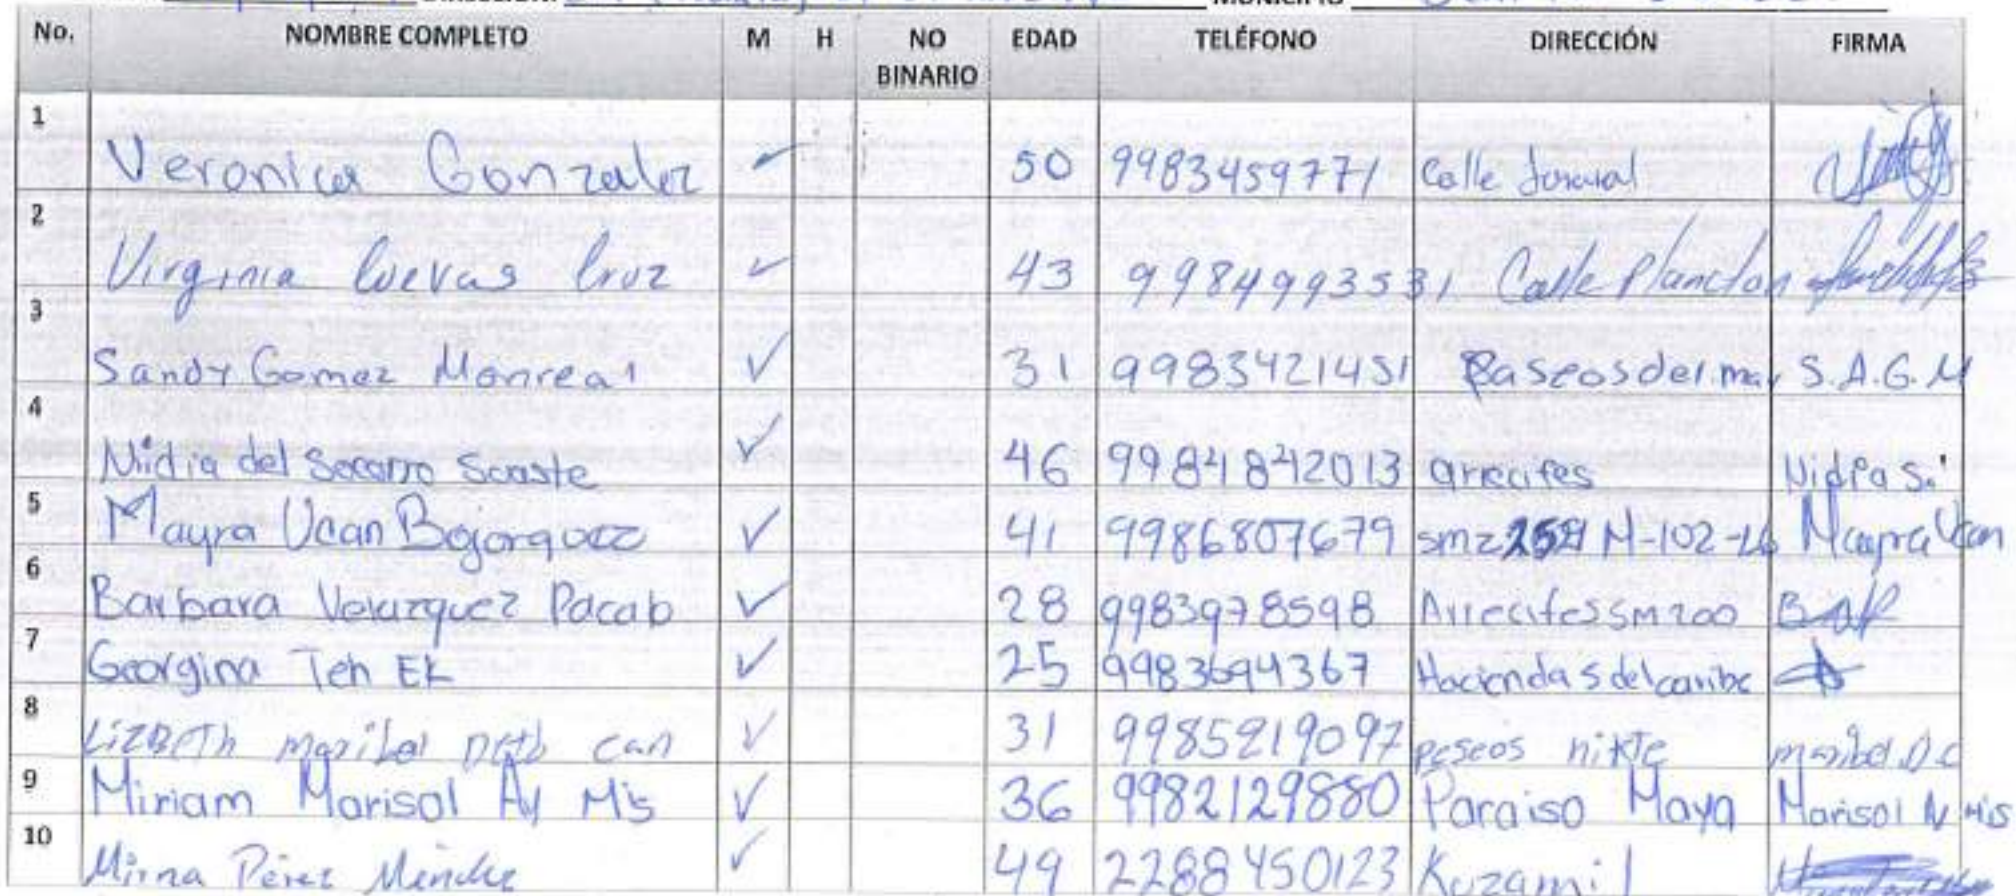 No. NOMBRE COMPLETO M H NO BINARIO EDAD TELÉFONO DIRECCIÓN FIRMA
1 Veronica Gonzalez ✓ 50 9983459771 Calle
2 Virginia Cuevas Cruz ✓ 43 9984993531 Calle Plancton
3 Sandy Gomez Monreal ✓ 31 9983421451 Paseos del mar S.A.G.M
4 Nidia del Socorro ✓ 46 9984842013 arrecifes Nidia S.
5 Mayra Ucan Bojorquez ✓ 41 9986807679 smz M-102- Mayra Ucan
6 Barbara Velazquez Pacab ✓ 28 9983978598 Arrecifes sm200
7 Georgina Teh EK ✓ 25 9983694367 Haciendas del caribe
8 Lizbeth maribel can ✓ 31 9985219097 peseos nikte maribel D.C
9 Miriam Marisol Ay Mis ✓ 36 9982129880 Paraiso Maya Marisol Mis
10 Mirna Pérez Méndez ✓ 49 2288450123 Kuzamil